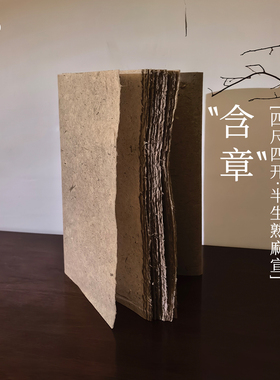 “含章”
[四尺四开·半生熟麻宣]